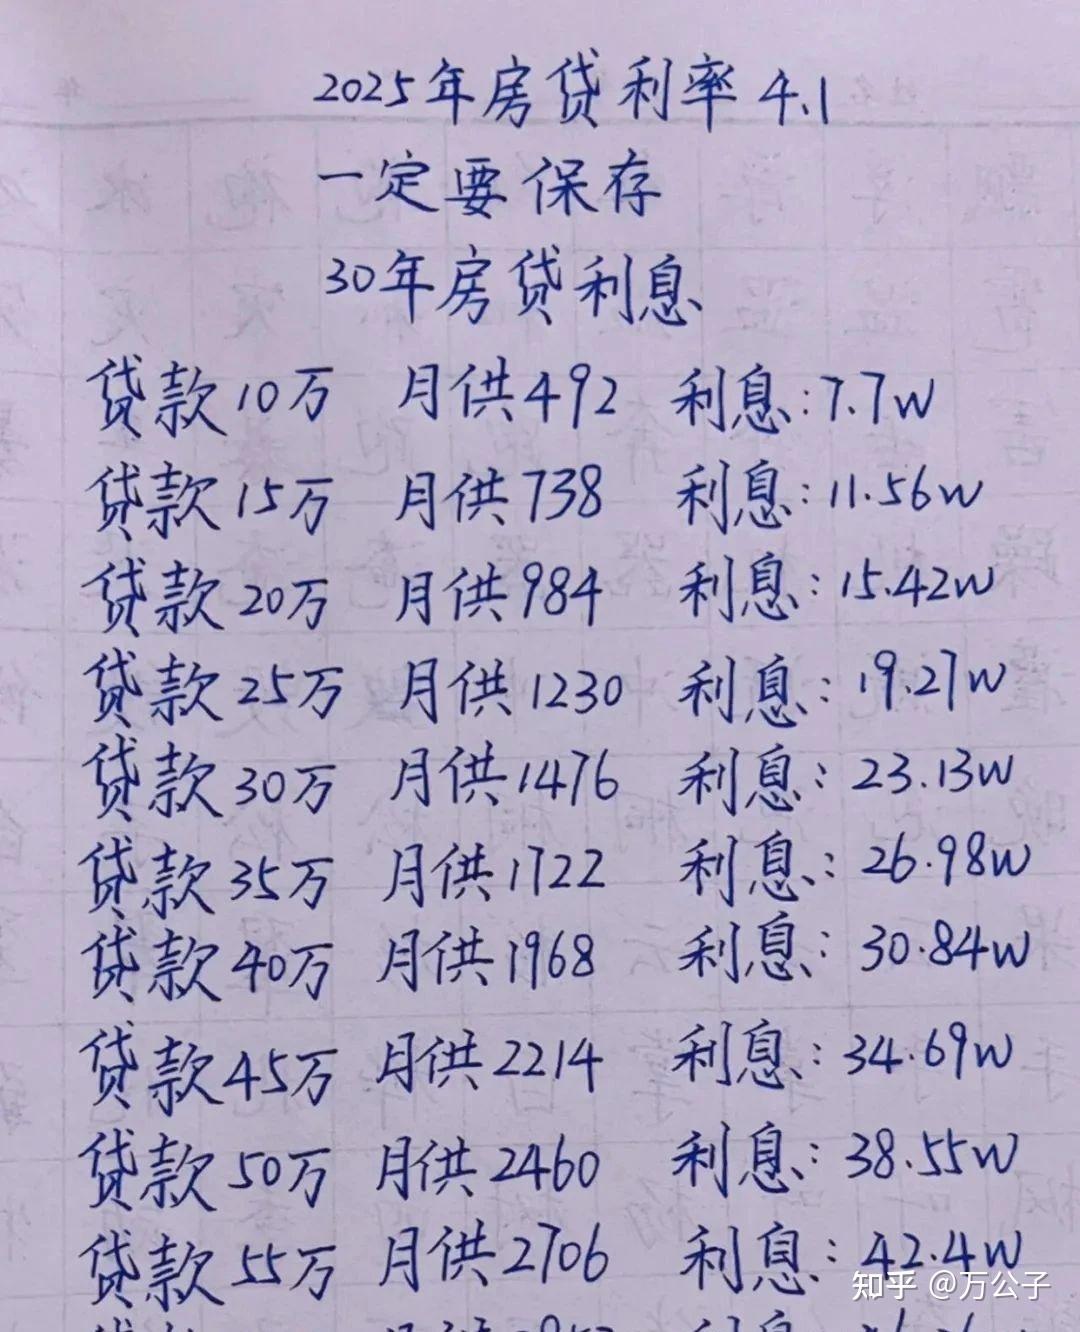 2025年房贷利率4.1
一定要保存
30年房贷利息
贷款10万 月供492 利息:7.7w
贷款15万 月供738 利息:11.56w
贷款20万 月供984 利息:15.42w
贷款25万 月供1230 利息:19.27w
贷款30万 月供1476 利息:23.13w
贷款35万 月供1722 利息:26.98w
贷款40万 月供1968 利息:30.84w
贷款45万 月供2214 利息:34.69w
贷款50万 月供2460 利息:38.55w
贷款55万 月供2706 利息:42.4w
知乎 @万公子